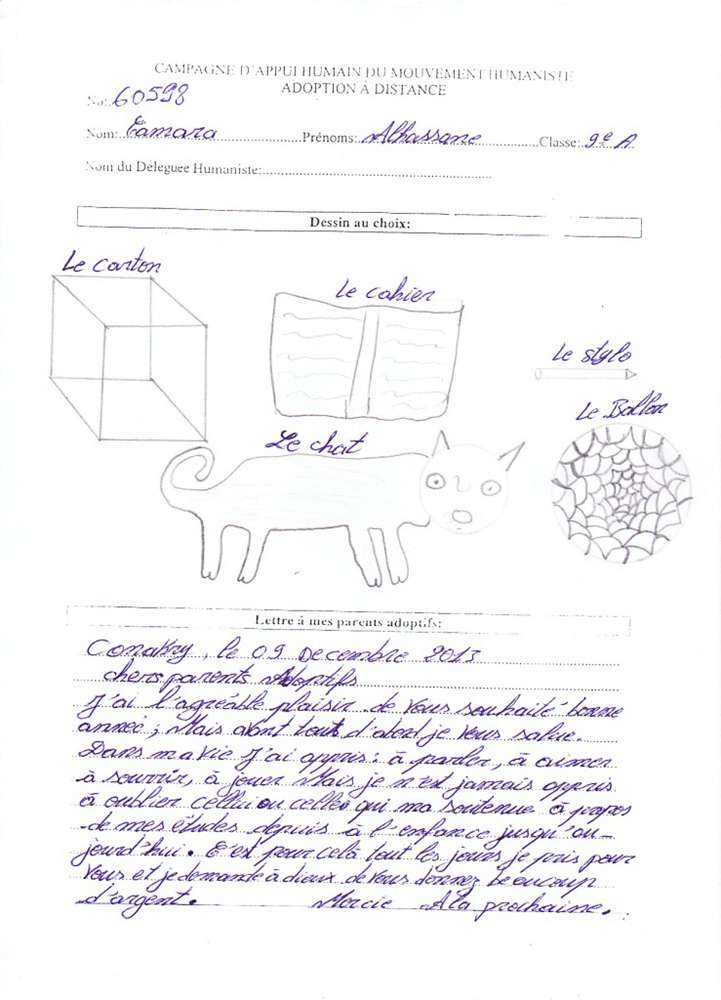 CAMPAGNE D'APPUI HUMAIN DU MOUVEMENT HUMANISTE
ADOPTION À DISTANCE
No: 60598
Nom: Camara Prénoms: Alhassane Classe: 9e A
Nom du Deleguee Humaniste:
Dessin au choix:
Le carton
Le cahier
Le stylo
Le Ballon
Le chat
Lettre à mes parents adoptifs:
Conakry, le 09 Decembre 2013
chers parents Adoptifs
J'ai l'agréable plaisir de vous souhaité bonne
anneé ; Mais avant tout d'abord je vous salue.
Dans ma vie J'ai appris : à parler, à aimer
à sourrir, à jouer Mais je n'est jamais appris
à oublier cellui ou celles qui ma soutenue à propos
de mes études depuis à l'enfance jusqu'au-
jourd'hui. C'est pour celà tout les jours je pris pour
vous et je demande à dieux de vous donnez beaucoup
d'argent. Mercie A la prochaine.